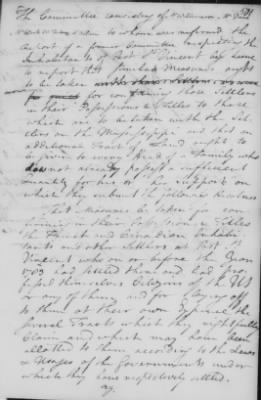 The Committee consisting of Mr Dickinson, Mr
to whom was referred the
report of a former Committee respecting the
Inhabitants of Post St Vincent beg leave
to report that Measures ought
to be taken
for confirming those Settlers
in their Possessions & Titles to those
which are to be taken with the Set-
tlers on the Missisippi and that an
additional Tract of Land ought to
be given to every Head of a Family who
does not already possess a sufficient
quantity for his or her support on
which they submit the following Resolves
That Measures be taken for con-
firming in their Possessions & Titles
the French and Canadian Inhabi-
tants and other Settlers at Post St
Vincent who on or before the Year
1783 had settled there and had pro-
fessed themselves Citizens of the US
or any of them and for laying off
to them at their own Expence the
several Tracts which they rightfully
Claim and which may have been
allotted to them according to the Laws
& Usages of the Governments under
which they have respectively settled.